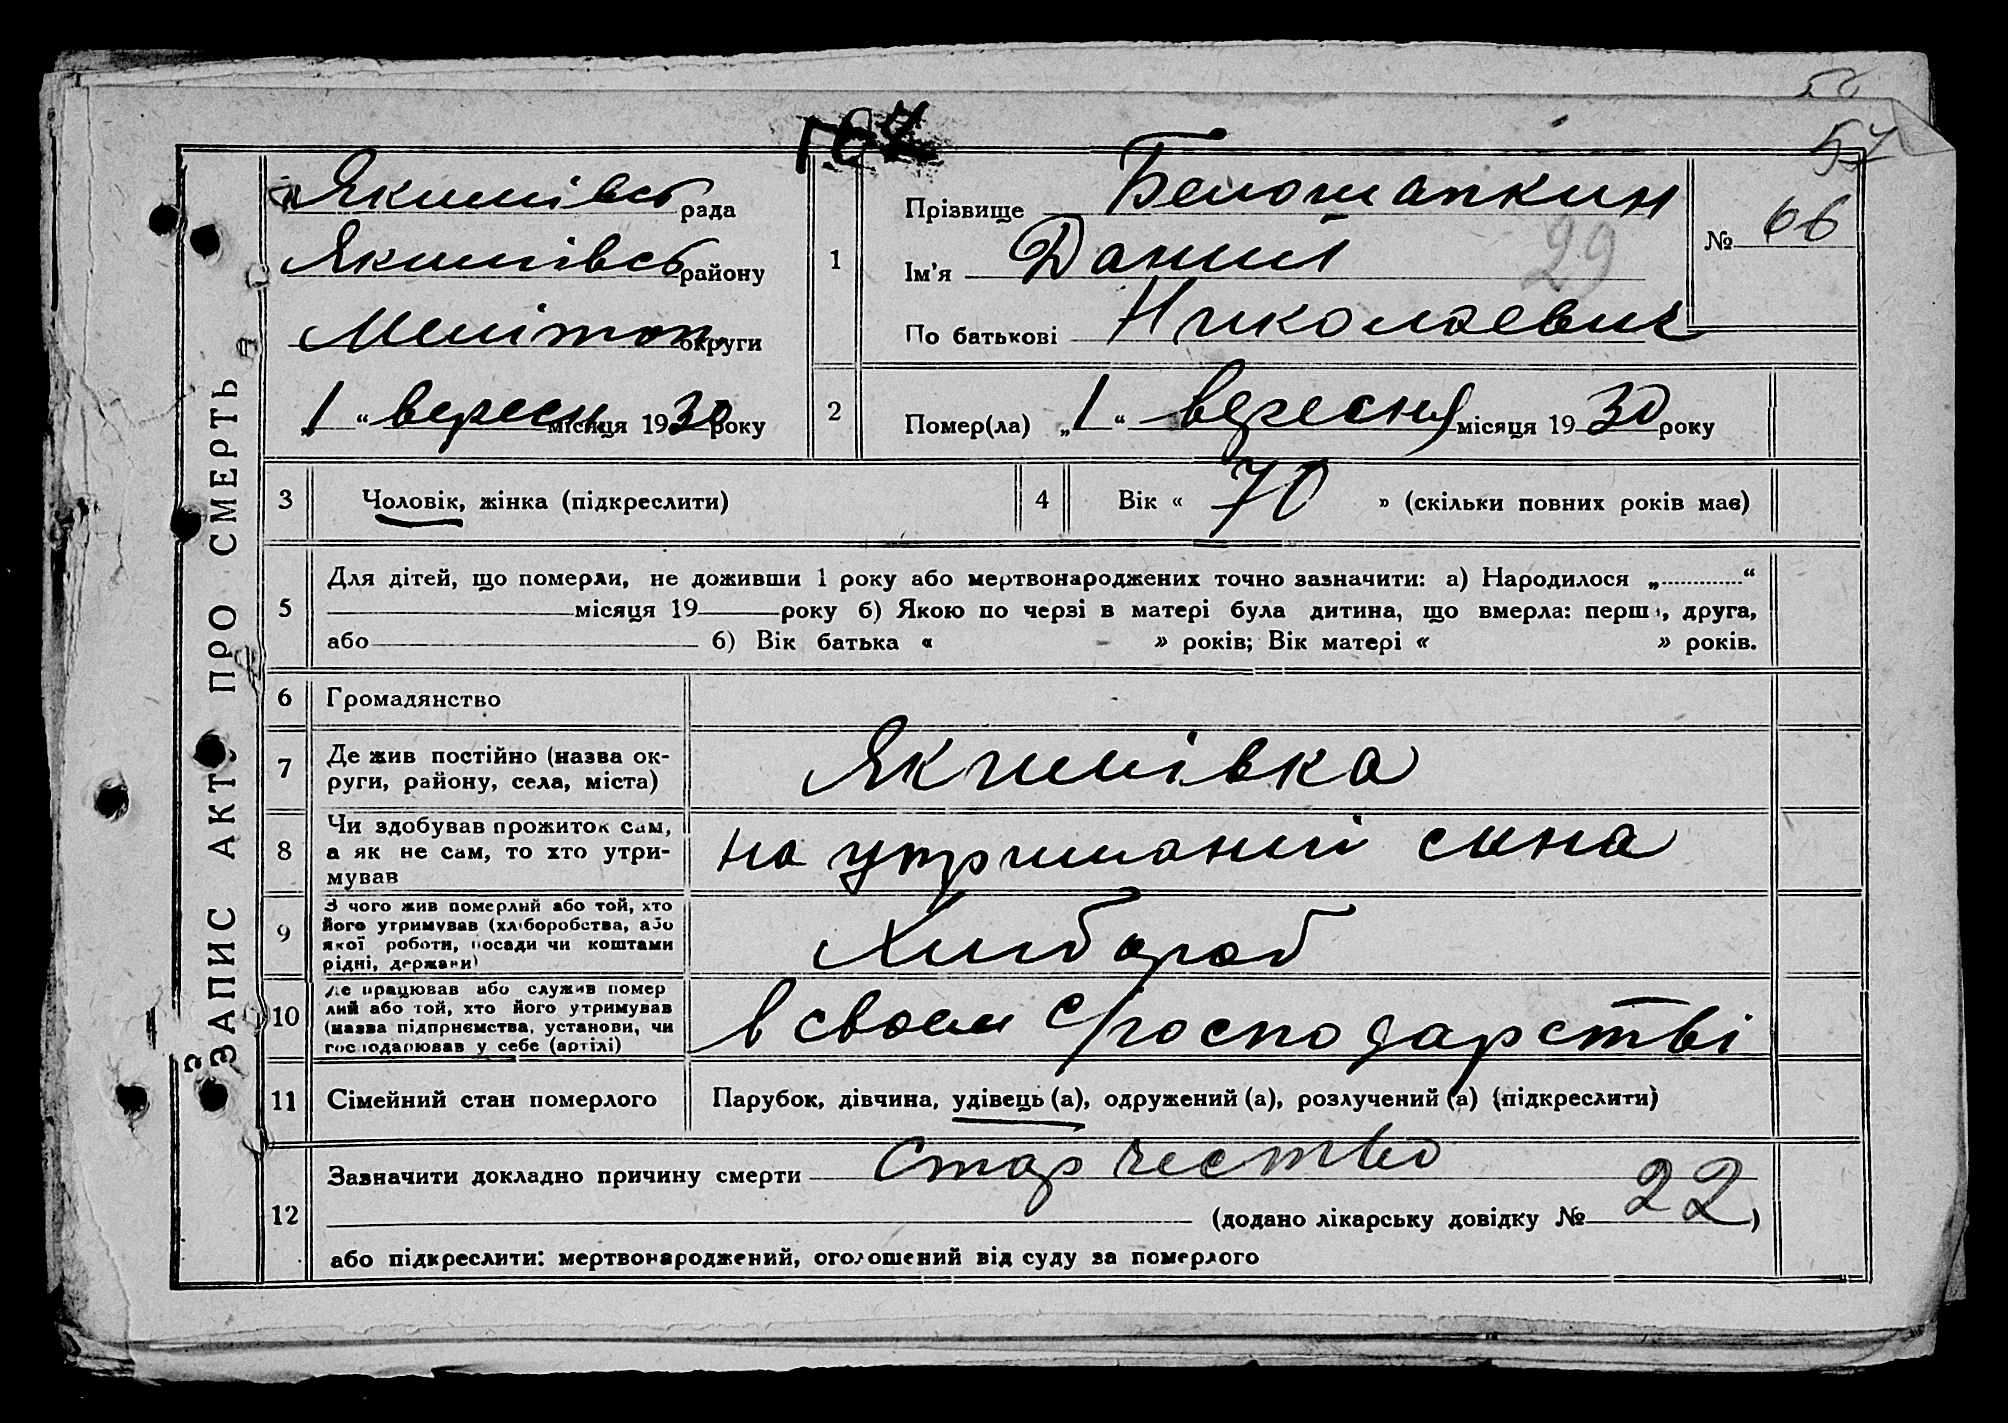 50
57
ЗАПИС АКТУ ПРО СМЕРТЬ
Якимівсь рада
Якимівсь району
Мелітоп. округи
„1“ вересн місяця 1930 року
1
Прізвище Белошапкин
Ім'я Данил
29
По батькові Николаевич
№ 66
2
Помер(ла) „1“ вересня місяця 1930 року
3 Чоловік, жінка (підкреслити)
4 Вік « 70 » (скільки повних років має)
5
Для дітей, що померли, не доживши 1 року або мертвонароджених точно зазначити: а) Народилося „ “
місяця 19 року б) Якою по черзі в матері була дитина, що вмерла: перша, друга,
або б) Вік батька « » років; Вік матері « » років.
6 Громадянство
7
Де жив постійно (назва ок-
руги, району, села, міста)
Якимівка
8
Чи здобував прожиток сам,
а як не сам, то хто утри-
мував
на утриманій сина
9
З чого жив померлый або той, хто
його утримував (хліборобства, або
якої роботи, посади чи коштами
рідні, держави)
Хлібороб
10
Де працював або служив помер
лий або той, хто його утримував
(назва підприємства, установи, чи
господарював у себе (артілі)
в своем господарстві
11 Сімейний стан померлого
Парубок, дівчина, удівець (а), одружений (а), розлучений (а) (підкреслити)
12
Зазначити докладно причину смерти старчество
(додано лікарську довідку № 22)
або підкреслити: мертвонароджений, оголошений від суду за померлого